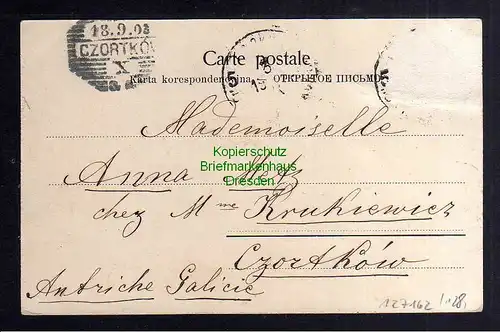 18.9.03
CZORTKÓW
Carte postale
Karta korespondencyjna. ОТКРЫТОЕ ПИСЬМО
5
Mademoiselle
Kopierschutz
Briefmarkenhaus
Dresden
Anna
chez Mme Krukiewicz
Czortków
Autriche Galicie
127162 / 28,